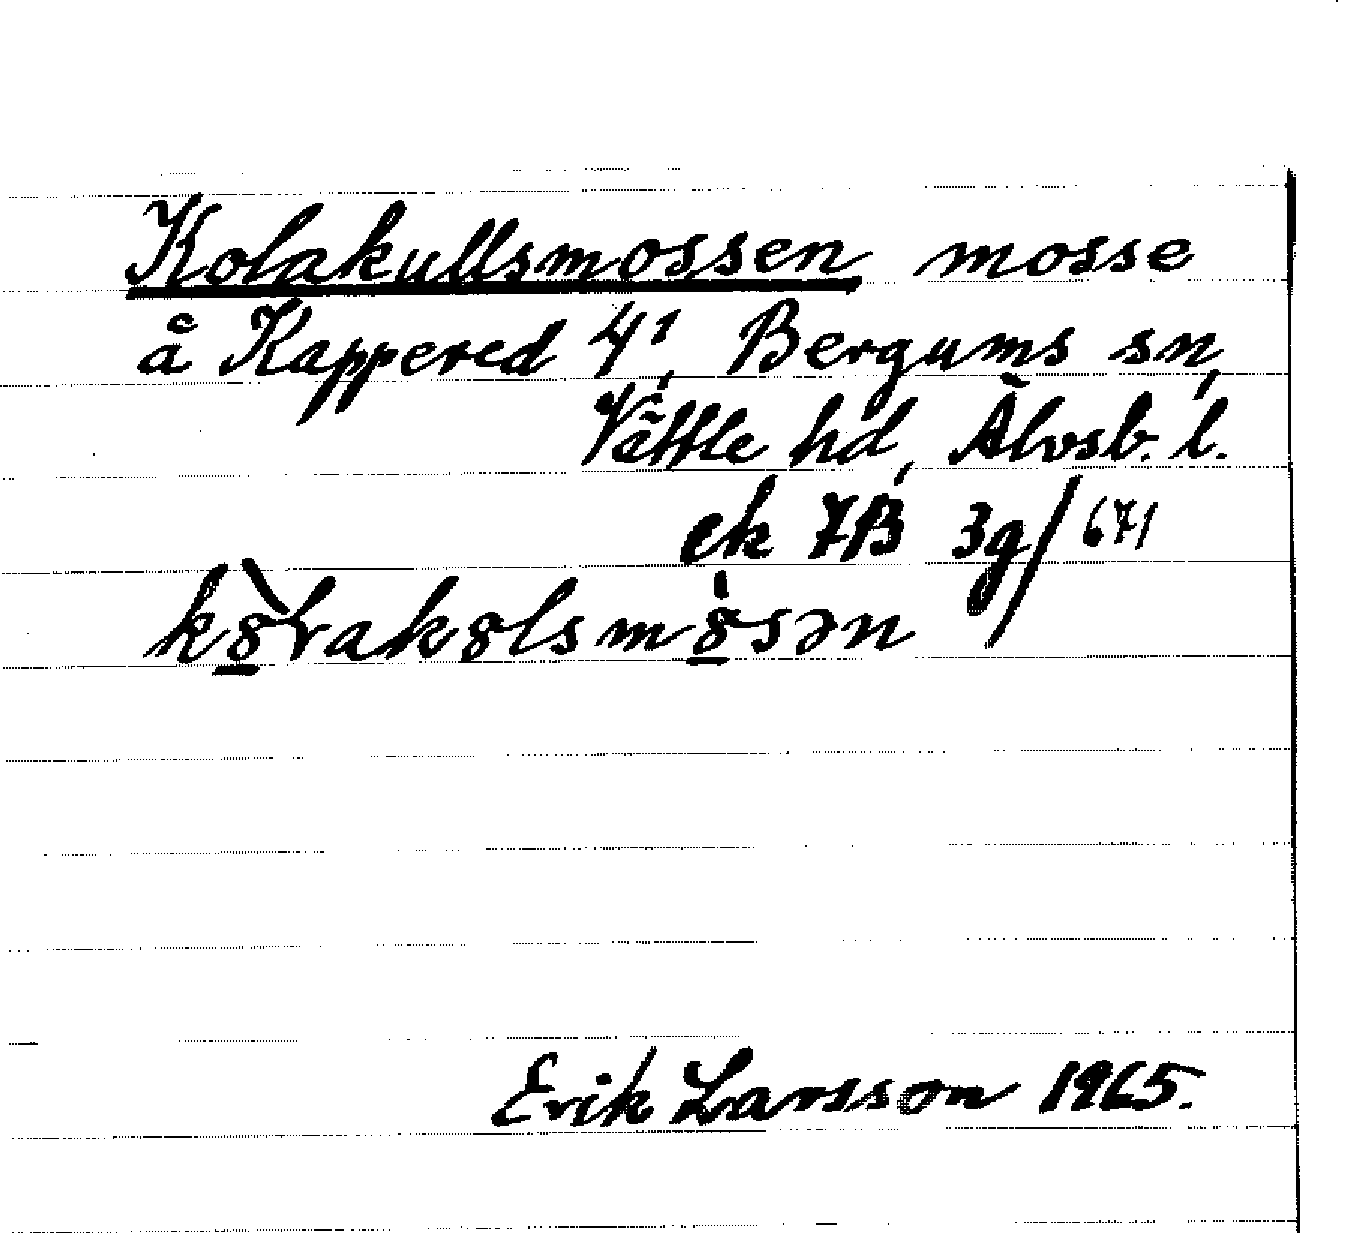 Kolakullsmossen mosse
å Kappered 4¹, Bergums sn,
Vättle hd, Älvsb. l.
ek 7B 3g/671
k8̱̀rak8lsm8̱̍sən
Erik Larsson 1965.